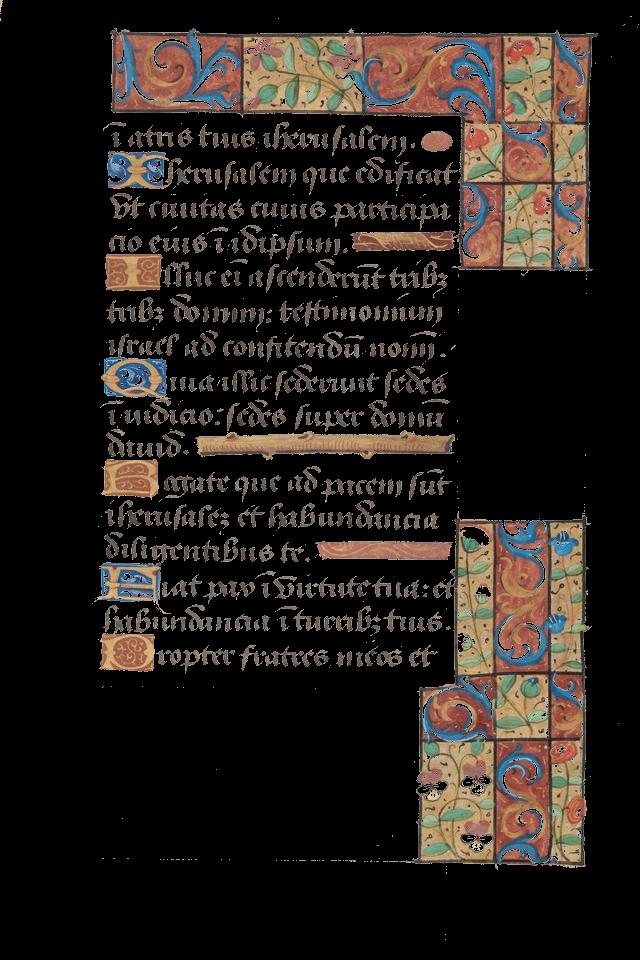 ī atris tuis iherusalem.
Iherusalem que edificat
vt ciuitas cuius participa
cio eius ī idipsum.
Illuc eī ascenderūt tribꝫ
tribꝫ domini: testimonium
israel ad confitendū nomī.
Quia illic sederunt sedes
ī iudicio: sedes super domū
dauid.
Rogate que ad pacem sūt
iherusalēꝫ et habundancia
diligentibus te.
Fiat pax ī virtute tua: et
habundancia ī turribꝫ tuis.
Propter fratres meos et